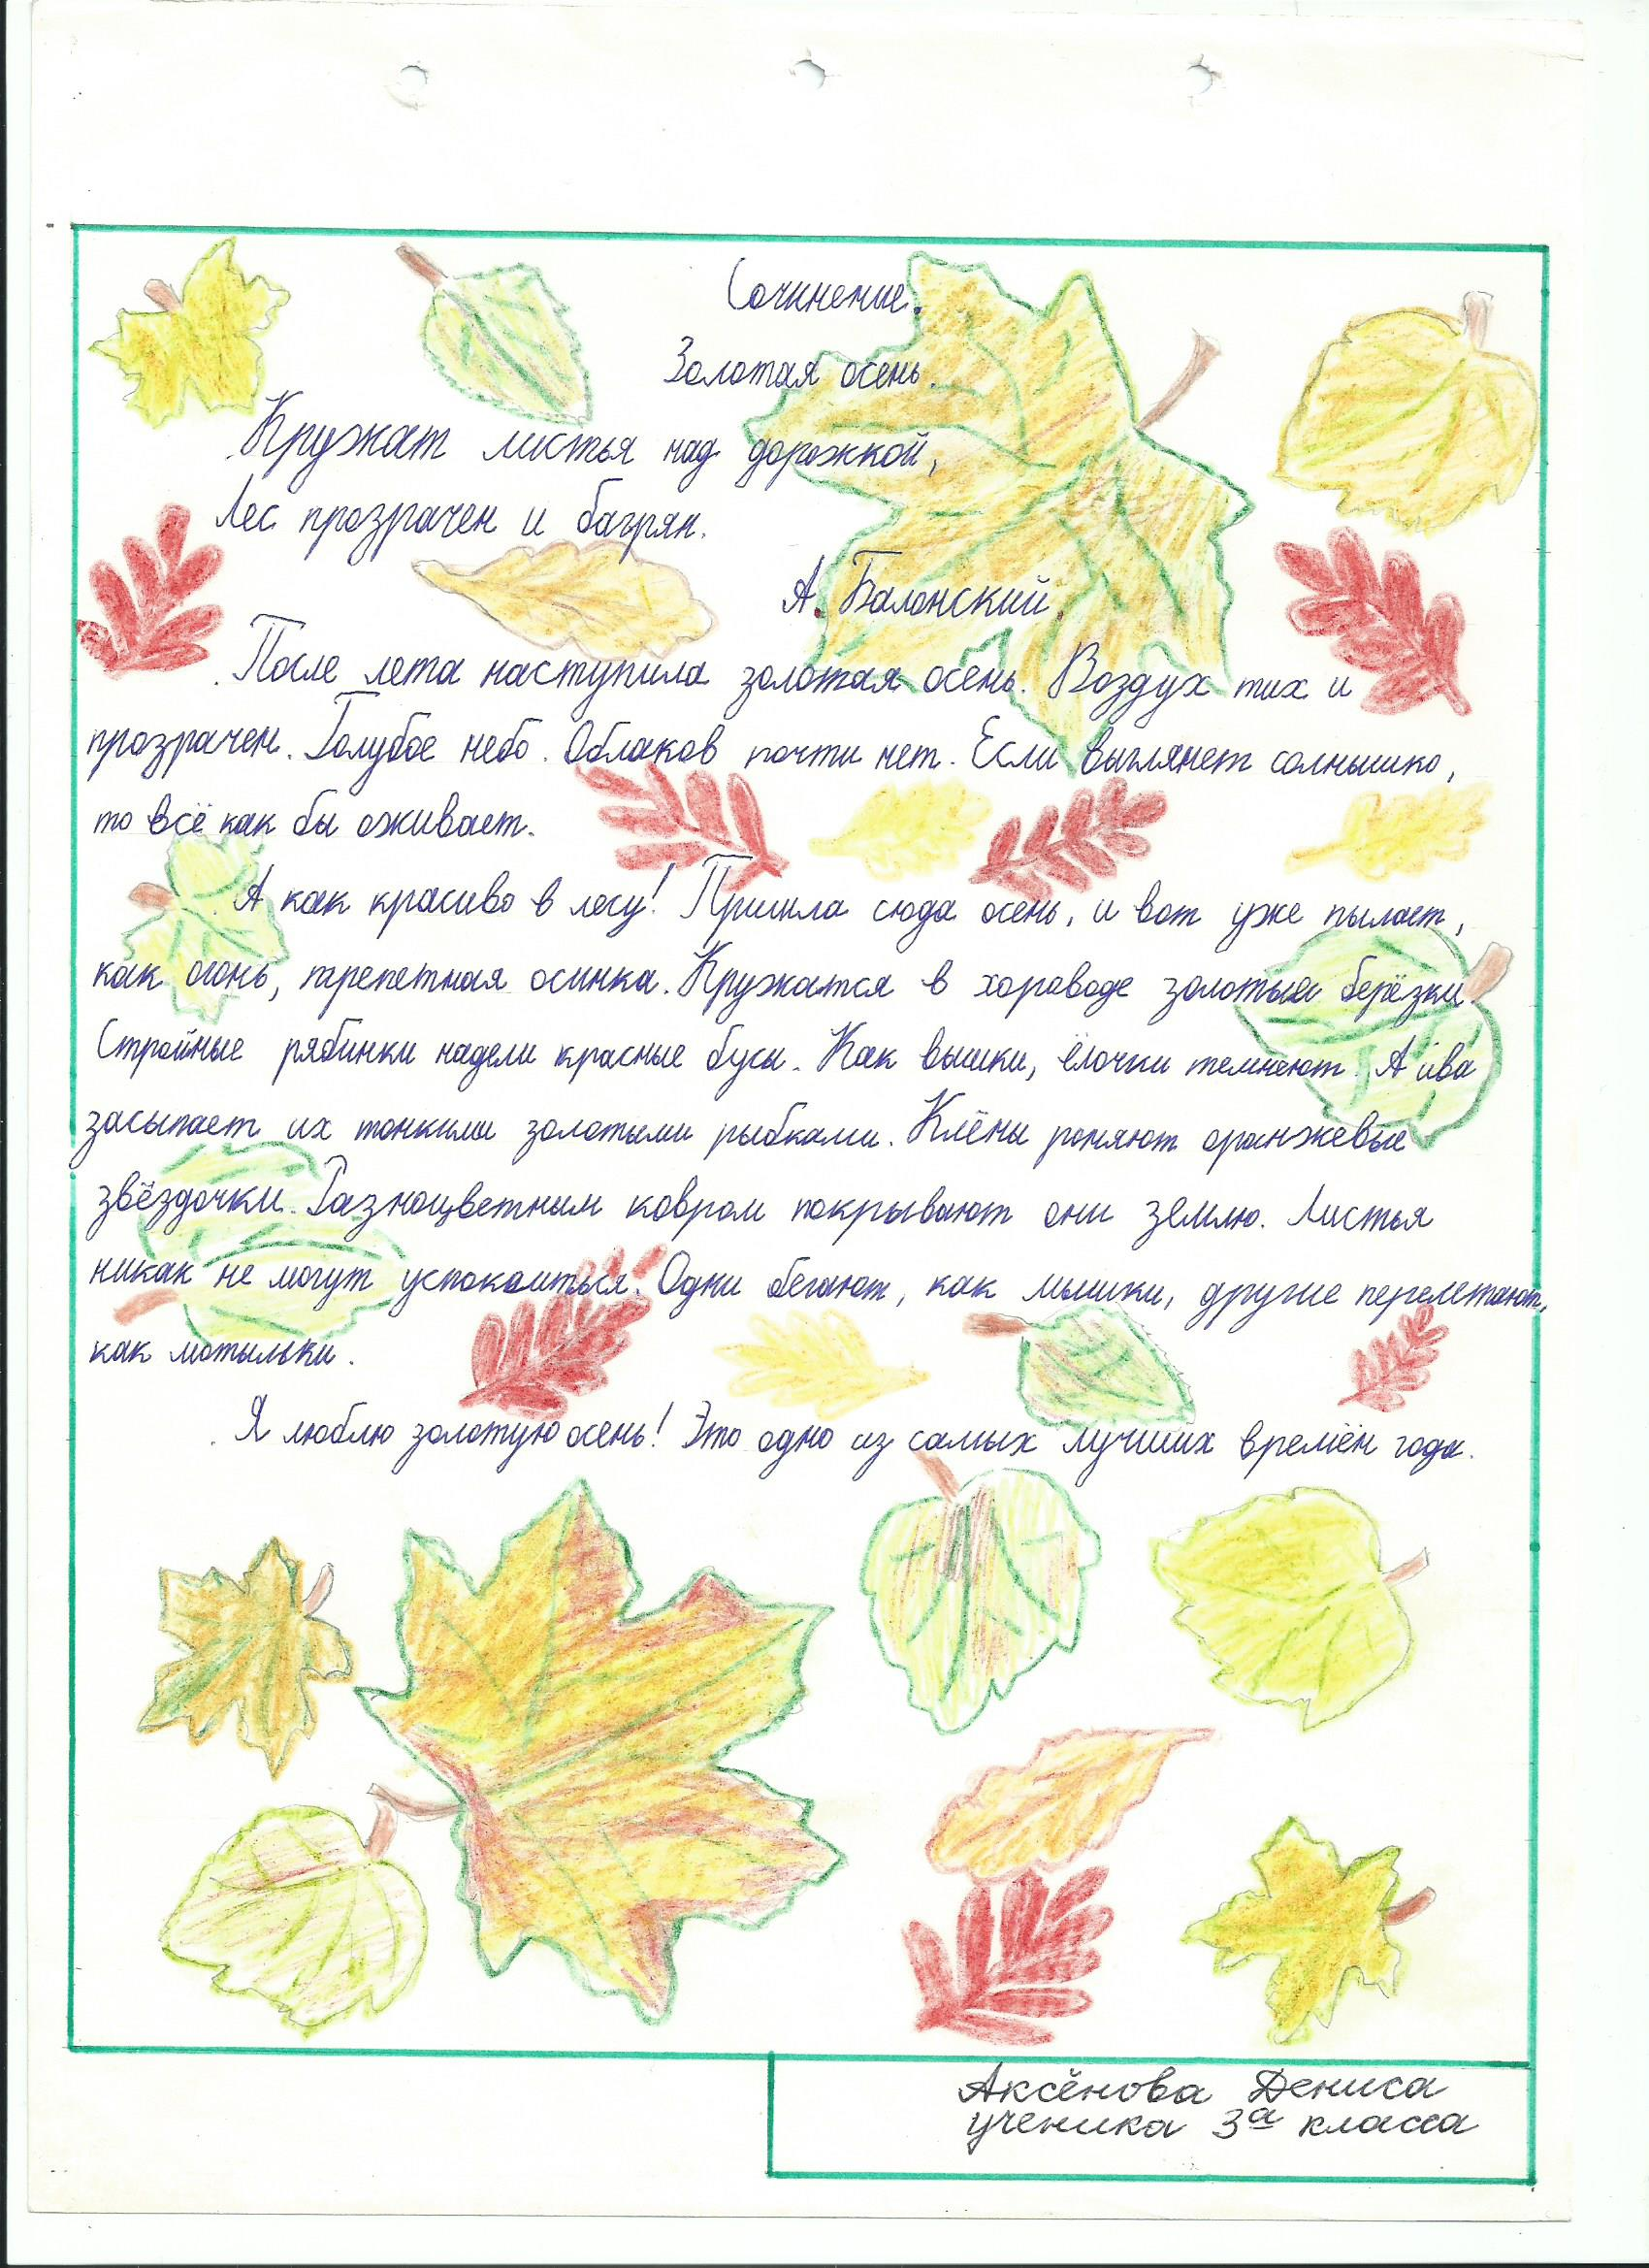 Сочинение.
Золотая осень.
Кружат листья над дорожкой,
Лес прозрачен и багрян.
А. Балонский.
После лета наступила золотая осень. Воздух тих и
прозрачен. Голубое небо. Облаков почти нет. Если выглянет солнышко,
то всё как бы оживает.
А как красиво в лесу! Пришла сюда осень, и вот уже пылает,
как огонь, трепетная осинка. Кружатся в хороводе золотые берёзки.
Стройные рябинки надели красные бусы. Как вышки, ёлочки темнеют. А ива
засыпает их тонкими золотыми рыбками. Клёны роняют оранжевые
звёздочки. Разноцветным ковром покрывают они землю. Листья
никак не могут успокоиться. Одни бегают, как мышки, другие перелетают,
как мотыльки.
Я люблю золотую осень! Это одно из самых лучших времён года.
Аксёнова Дениса
ученика 3а класса